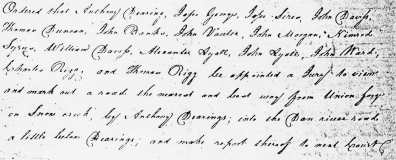 Ordered that Anthony Dearing, Jesse George, Jesse Sirco, John Davis,
Thomas Duncan, John Banks, John Vawter, John Morgan, Nimrod
William Davis, Alexander Lyall, John Lyall, John Ward,
Charles Rigg, and Thomas Rigg be appointed a Jury to view
and mark out a road the nearest and best way from Union
on Snow creek, by Anthony Dearings; into the Dan river road
a little below Dearings; and make report thereof to next Court